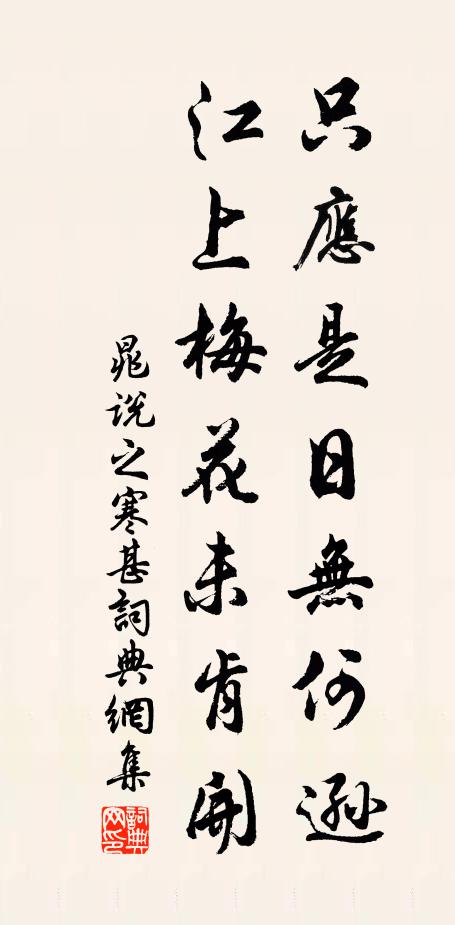 只應是日無何遜
江上梅花未肯開
晁說之寒甚詞典網集
詞典網印